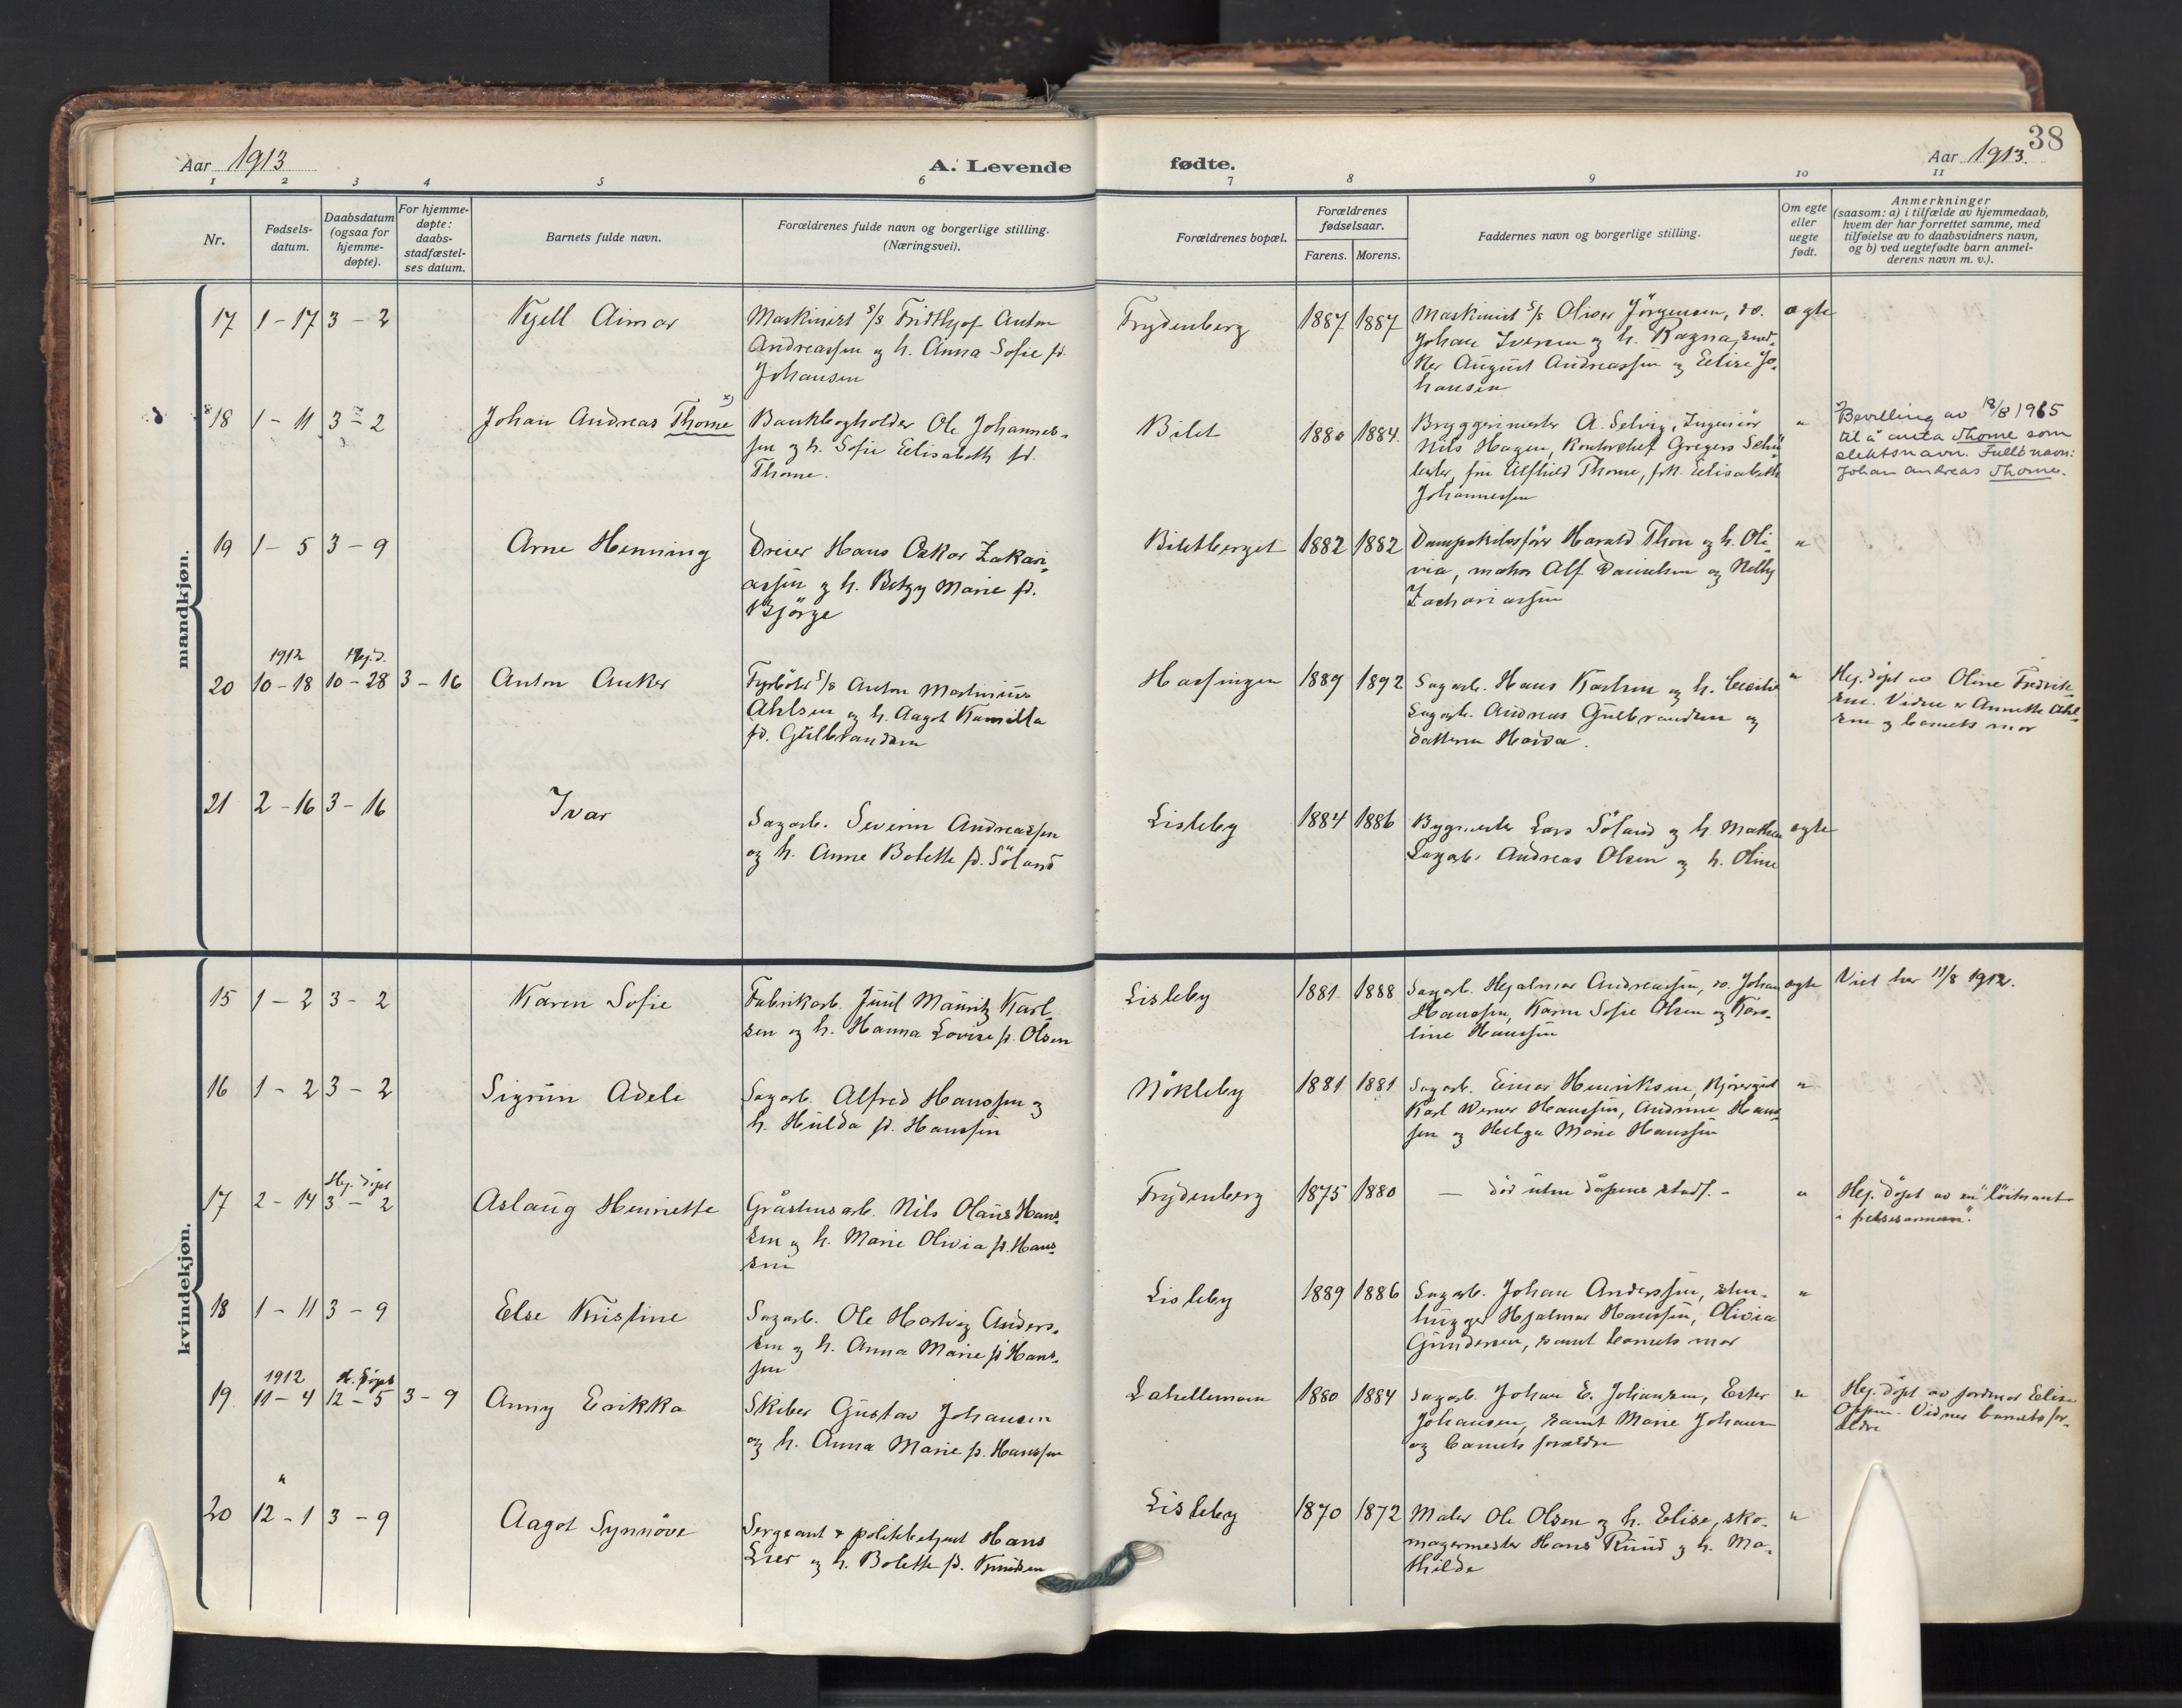 Aar 1913
A. Levende
fødte.
Aar 1913.
38
1 2 3 4 5 6 7 8 9 10 11
Nr.
Fødsels-
datum.
Daabsdatum
(ogsaa for
hjemme-
døpte).
For hjemme-
døpte:
daabs-
stadfæstel-
ses datum.
Barnets fulde navn.
Forældrenes fulde navn og borgerlige stilling.
(Næringsvei).
Forældrenes bopæl.
Forældrenes
fødselsaar.
Farens. Morens.
Faddernes navn og borgerlige stilling.
Om egte
eller
uegte
født.
Anmerkninger
(saasom: a) i tilfælde av hjemmedaab,
hvem der har forrettet samme, med
tilføielse av to daabsvidners navn,
og b) ved uegtefødte barn anmel-
derens navn m. v.).
mandkjøn.
17 1-17 3-2 Kjell Aimar
Maskinist s/s Fridthjof Anton
Andreassen og h. Anna Sofie fd.
Johansen
Trydenberg 1887 1887
Maskinist s/s Oliver Jörgensen, do.
Johan Iversen og h. Ragna, snd-
ker August Andreassen og Elise Jo-
hansen
egte
18 1-11 3-2 Johan Andreas Thome x)
Bankbogholder Ole Johannes-
sen og h. Sofie Elisabeth fd.
Thome.
Bilet 1880 1884
Bryggerimester A. Selvig, Ingeniör
Nils Hagen, Kontorchef Gregers
Thome, frk. Elisabeth
Johannessen
"
Bevilling av 18/8 1965
til å anta Thome som
slektsnavn. Fullt navn:
Johan Andreas Thome.
19 1-5 3-9 Arne Henning
Dreier Hans Oskar Zakari-
assen og h. Betzy Marie fd.
Bjørge
Biletberget 1882 1882
Dampskibsfører Harald Thon og h. Oli-
via, Alf Danielsen og Nelly
Zachariassen
"
20 1912 10-18 Hj.d. 10-28 3-16 Anton Anker
Fyrböter s/s Anton Martinius
Ahlsen og h. Aagot Kamilla
fd. Gulbrandsen
Hassingen 1889 1892
Sagarb. Hans Karlsen og h. Cecilie
Sagarb. Andreas Gulbrandsen og
datteren Harda.
"
Hj. døpt av Oline Fredrik-
sen. Vidner Annette Ahl-
sen og barnets mor
21 2-16 3-16 Ivar
Sagarb. Severin Andreassen
og h. Anne Bolette fd. Söland
Lisleby 1884 1886
Bygmester Lars Söland og h. Mathea
Sagarb. Andreas Olsen og h. Oline
egte
kvindekjøn.
15 1-2 3-2 Karen Sofie
Fabrikarb. Juul Mauritz Karl-
sen og h. Hanna Lovise fd. Olsen
Lisleby 1881 1888
Sagarb. Hjalmar Andreassen, do. Johan
Hanssen, Karen Sofie Olsen og Karo-
line Hanssen
egte
Viet her 11/8 1912.
16 1-2 3-2 Sigrun Adele
Sagarb. Alfred Hanssen og
h. Hulda fd. Hanssen
Nökleby 1881 1881
Sagarb. Einar Henriksen, Kjöregut
Karl Werner Hanssen, Andrine Hans-
sen og Helga Marie Hanssen
"
17 2-14 Hj. døpt 3-2 Aslaug Henriette
Gråstensarb. Nils Olaus Hans-
sen og h. Marie Olivia fd. Hans-
sen
Trydenberg 1875 1880
— död uten dåpens stadf. —
"
Hj. døpt av en "löitnant
i frelsesarmeen".
18 1-11 3-9 Else Kristine
Sagarb. Ole Hartvig Anders-
sen og h. Anna Marie fd Hans-
sen
Lisleby 1889 1886
Sagarb. Johan Anderssen, sten-
hugger Hjalmar Hanssen, Olivia
Gundersen, samt barnets mor
"
19 1912 11-4 H. døpt 12-5 3-9 Anny Erikka
Skiber Gustav Johansen
og h. Anna Marie fd. Hanssen
Lahellemoen 1880 1884
Sagarb. Johan E. Johansen, Ester
Johansen, samt Marie Johansen
og barnets forældre
"
Hj. døpt av jordmor Elise
Oppen. Vidner barnets for-
ældre
20 " 12-1 3-9 Aagot Synnöve
Sergeant & politibetjent Hans
Lier og h. Bolette fd. Knudsen
Lisleby 1870 1872
Maler Ole Olsen og h. Elise, sko-
magermester Hans Ruud og h. Ma-
thilde
"